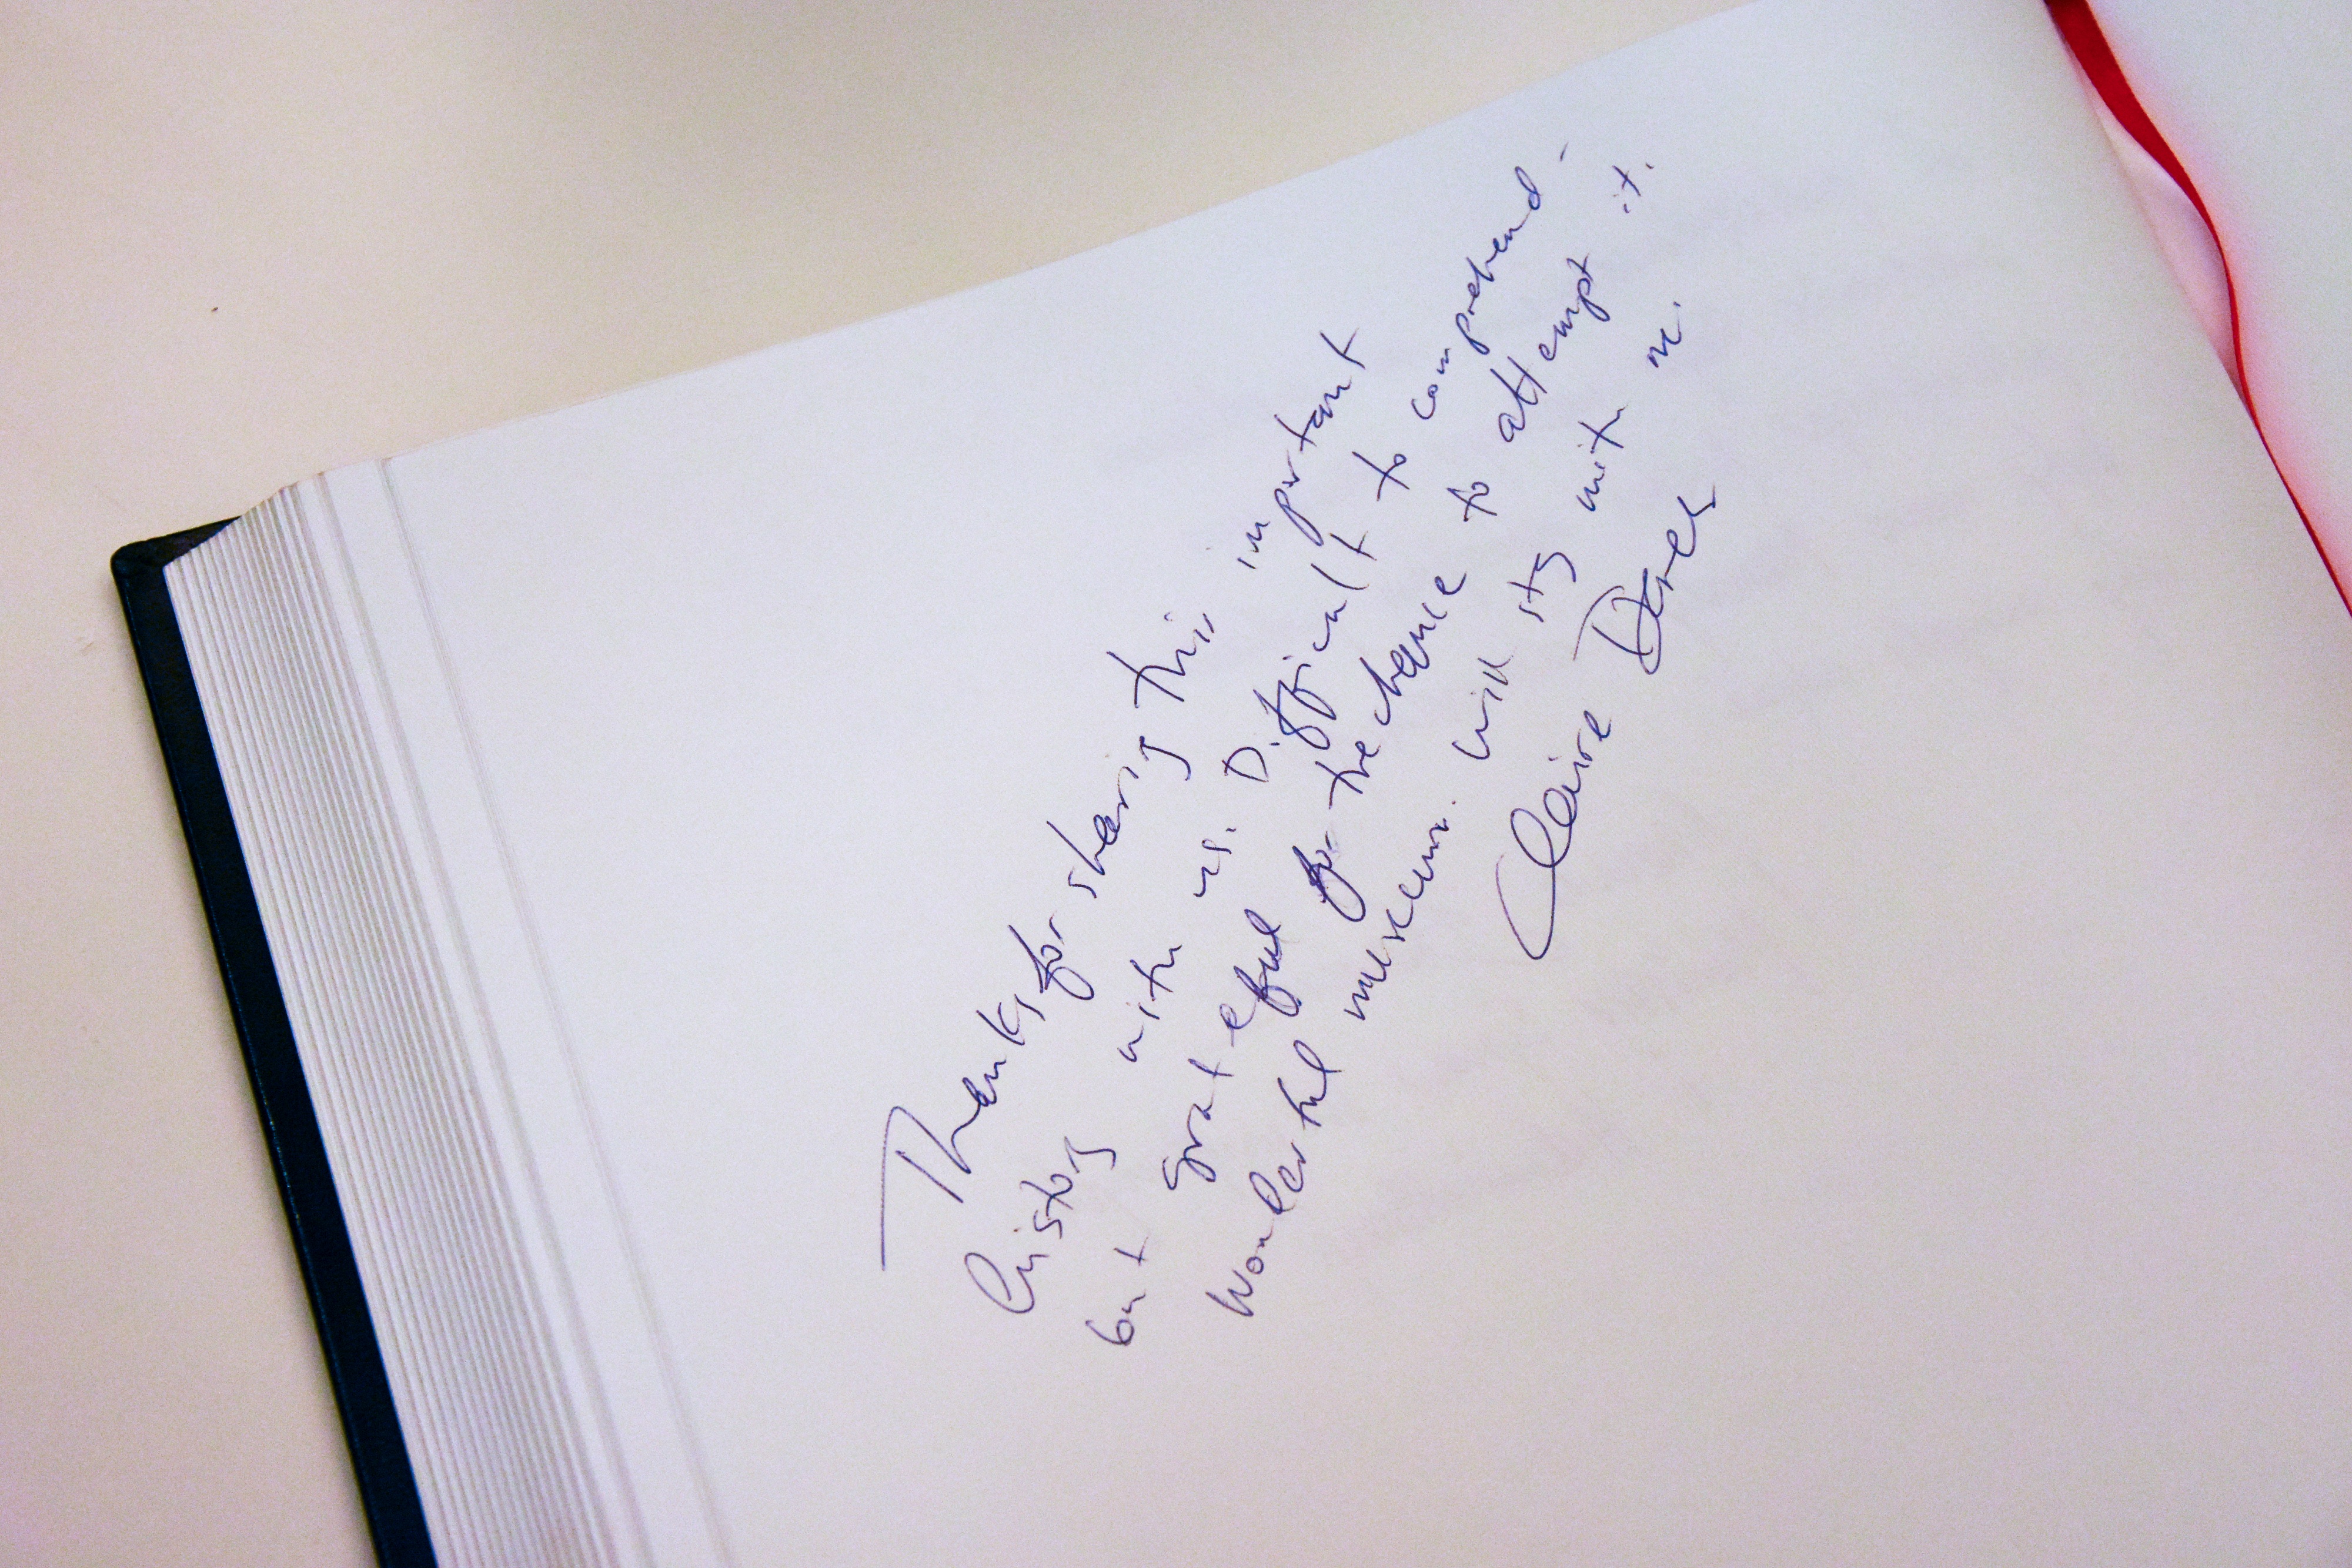 Thanks for sharing this important
history with us. Difficult to comprehend -
but grateful for the chance to attempt it.
Wonderful museum. Will stay with me.
Claire